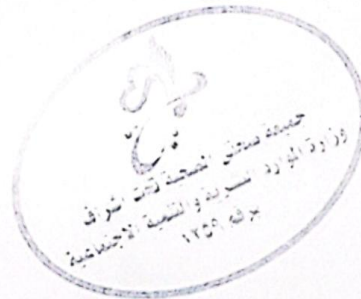 جمعية تحقق الصحة تحت اشراف
وزارة الموارد البشرية والتنمية الاجتماعية
برقم ١٢٥٩